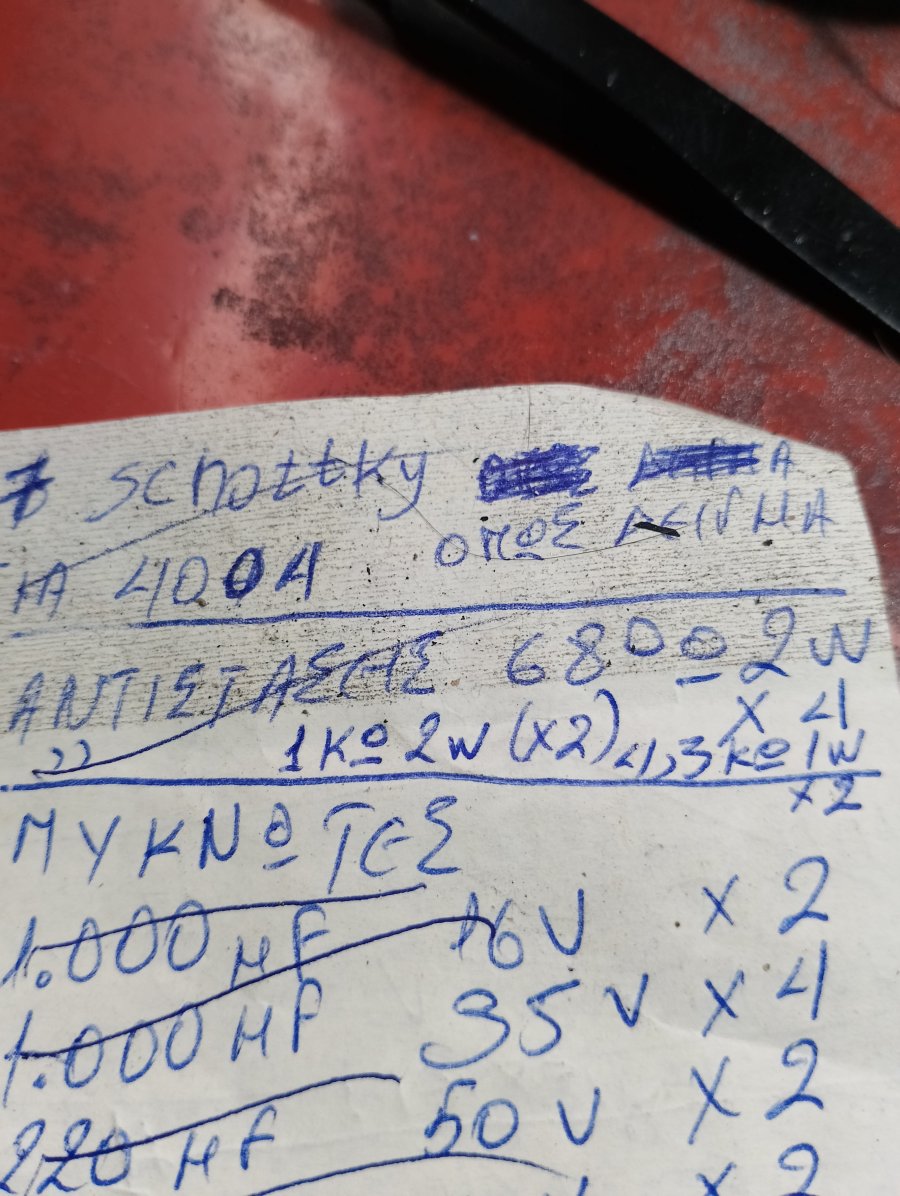 Schottky
4004 ΟΠΩΣ ΔΕΙΓΜΑ
ΑΝΤΙΣΤΑΣΕΙΣ 680Ω 2W
x 4
" 1KΩ 2W (x2) 4,3 KΩ 1W
x2
ΠΥΚΝΩΤΕΣ
1.000 μF 16V x 2
1.000 μF 35V x 4
220 μF 50V x 2
x 2